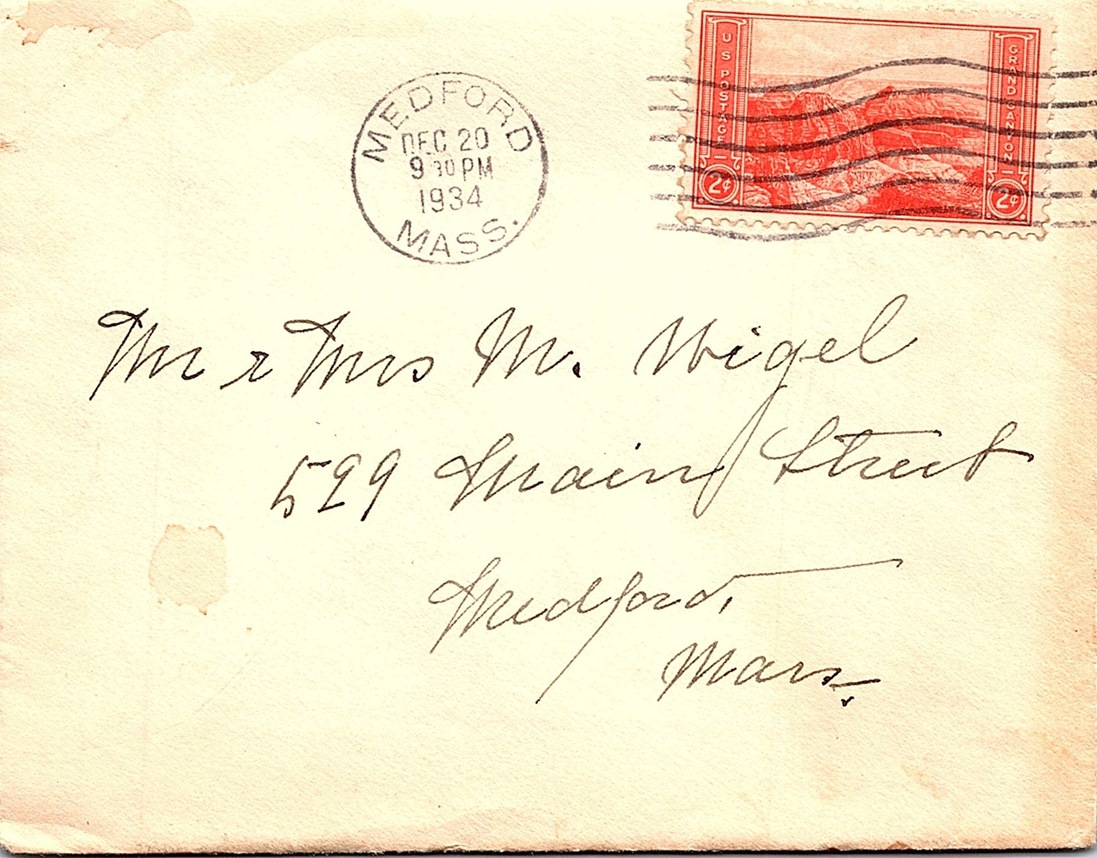 MEDFORD
DEC 20
9 30 PM
1934
MASS.
U S POSTAGE
GRAND CANYON
2¢
2¢
Mr & Mrs M. Wigel
529 Main Street
Medford,
Mass.